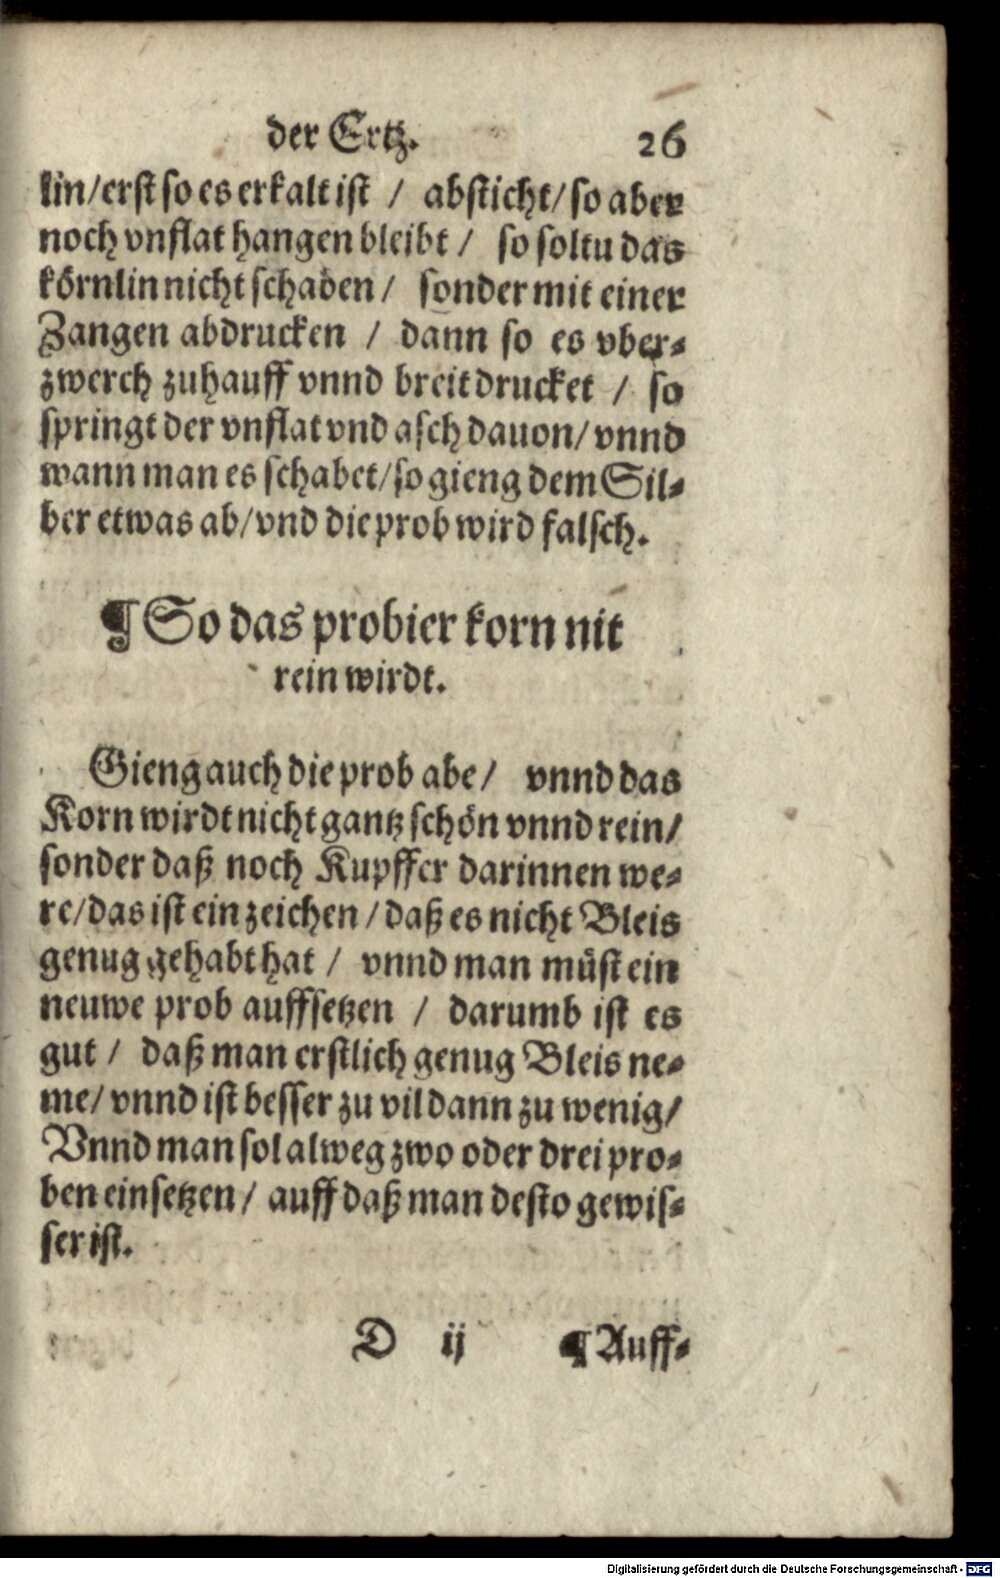 der Ertz. 26
lin/erst so es erkalt ist / absticht/so aber
noch vnflat hangen bleibt / so soltu das
körnlin nicht schaben / sonder mit einer
Zangen abdrucken / dann so es vber-
zwerch zuhauff vnnd breit drucket / so
springt der vnflat vnd asch dauon/ vnnd
wann man es schabet/so gieng dem Sil-
ber etwas ab/vnd die prob wird falsch.
¶ So das probier korn nit
rein wirdt.
Gieng auch die prob abe / vnnd das
Korn wirdt nicht gantz schön vnnd rein/
sonder daß noch Kupffer darinnen we-
re/das ist ein zeichen / daß es nicht Bleis
genug gehabt hat / vnnd man müst ein
neuwe prob auffsetzen / darumb ist es
gut / daß man erstlich genug Bleis ne-
me/ vnnd ist besser zu vil dann zu wenig/
Vnnd man sol alweg zwo oder drei pro-
ben einsetzen / auff daß man desto gewis-
ser ist.
D ij ¶ Auff-
Digitalisierung gefördert durch die Deutsche Forschungsgemeinschaft - DFG